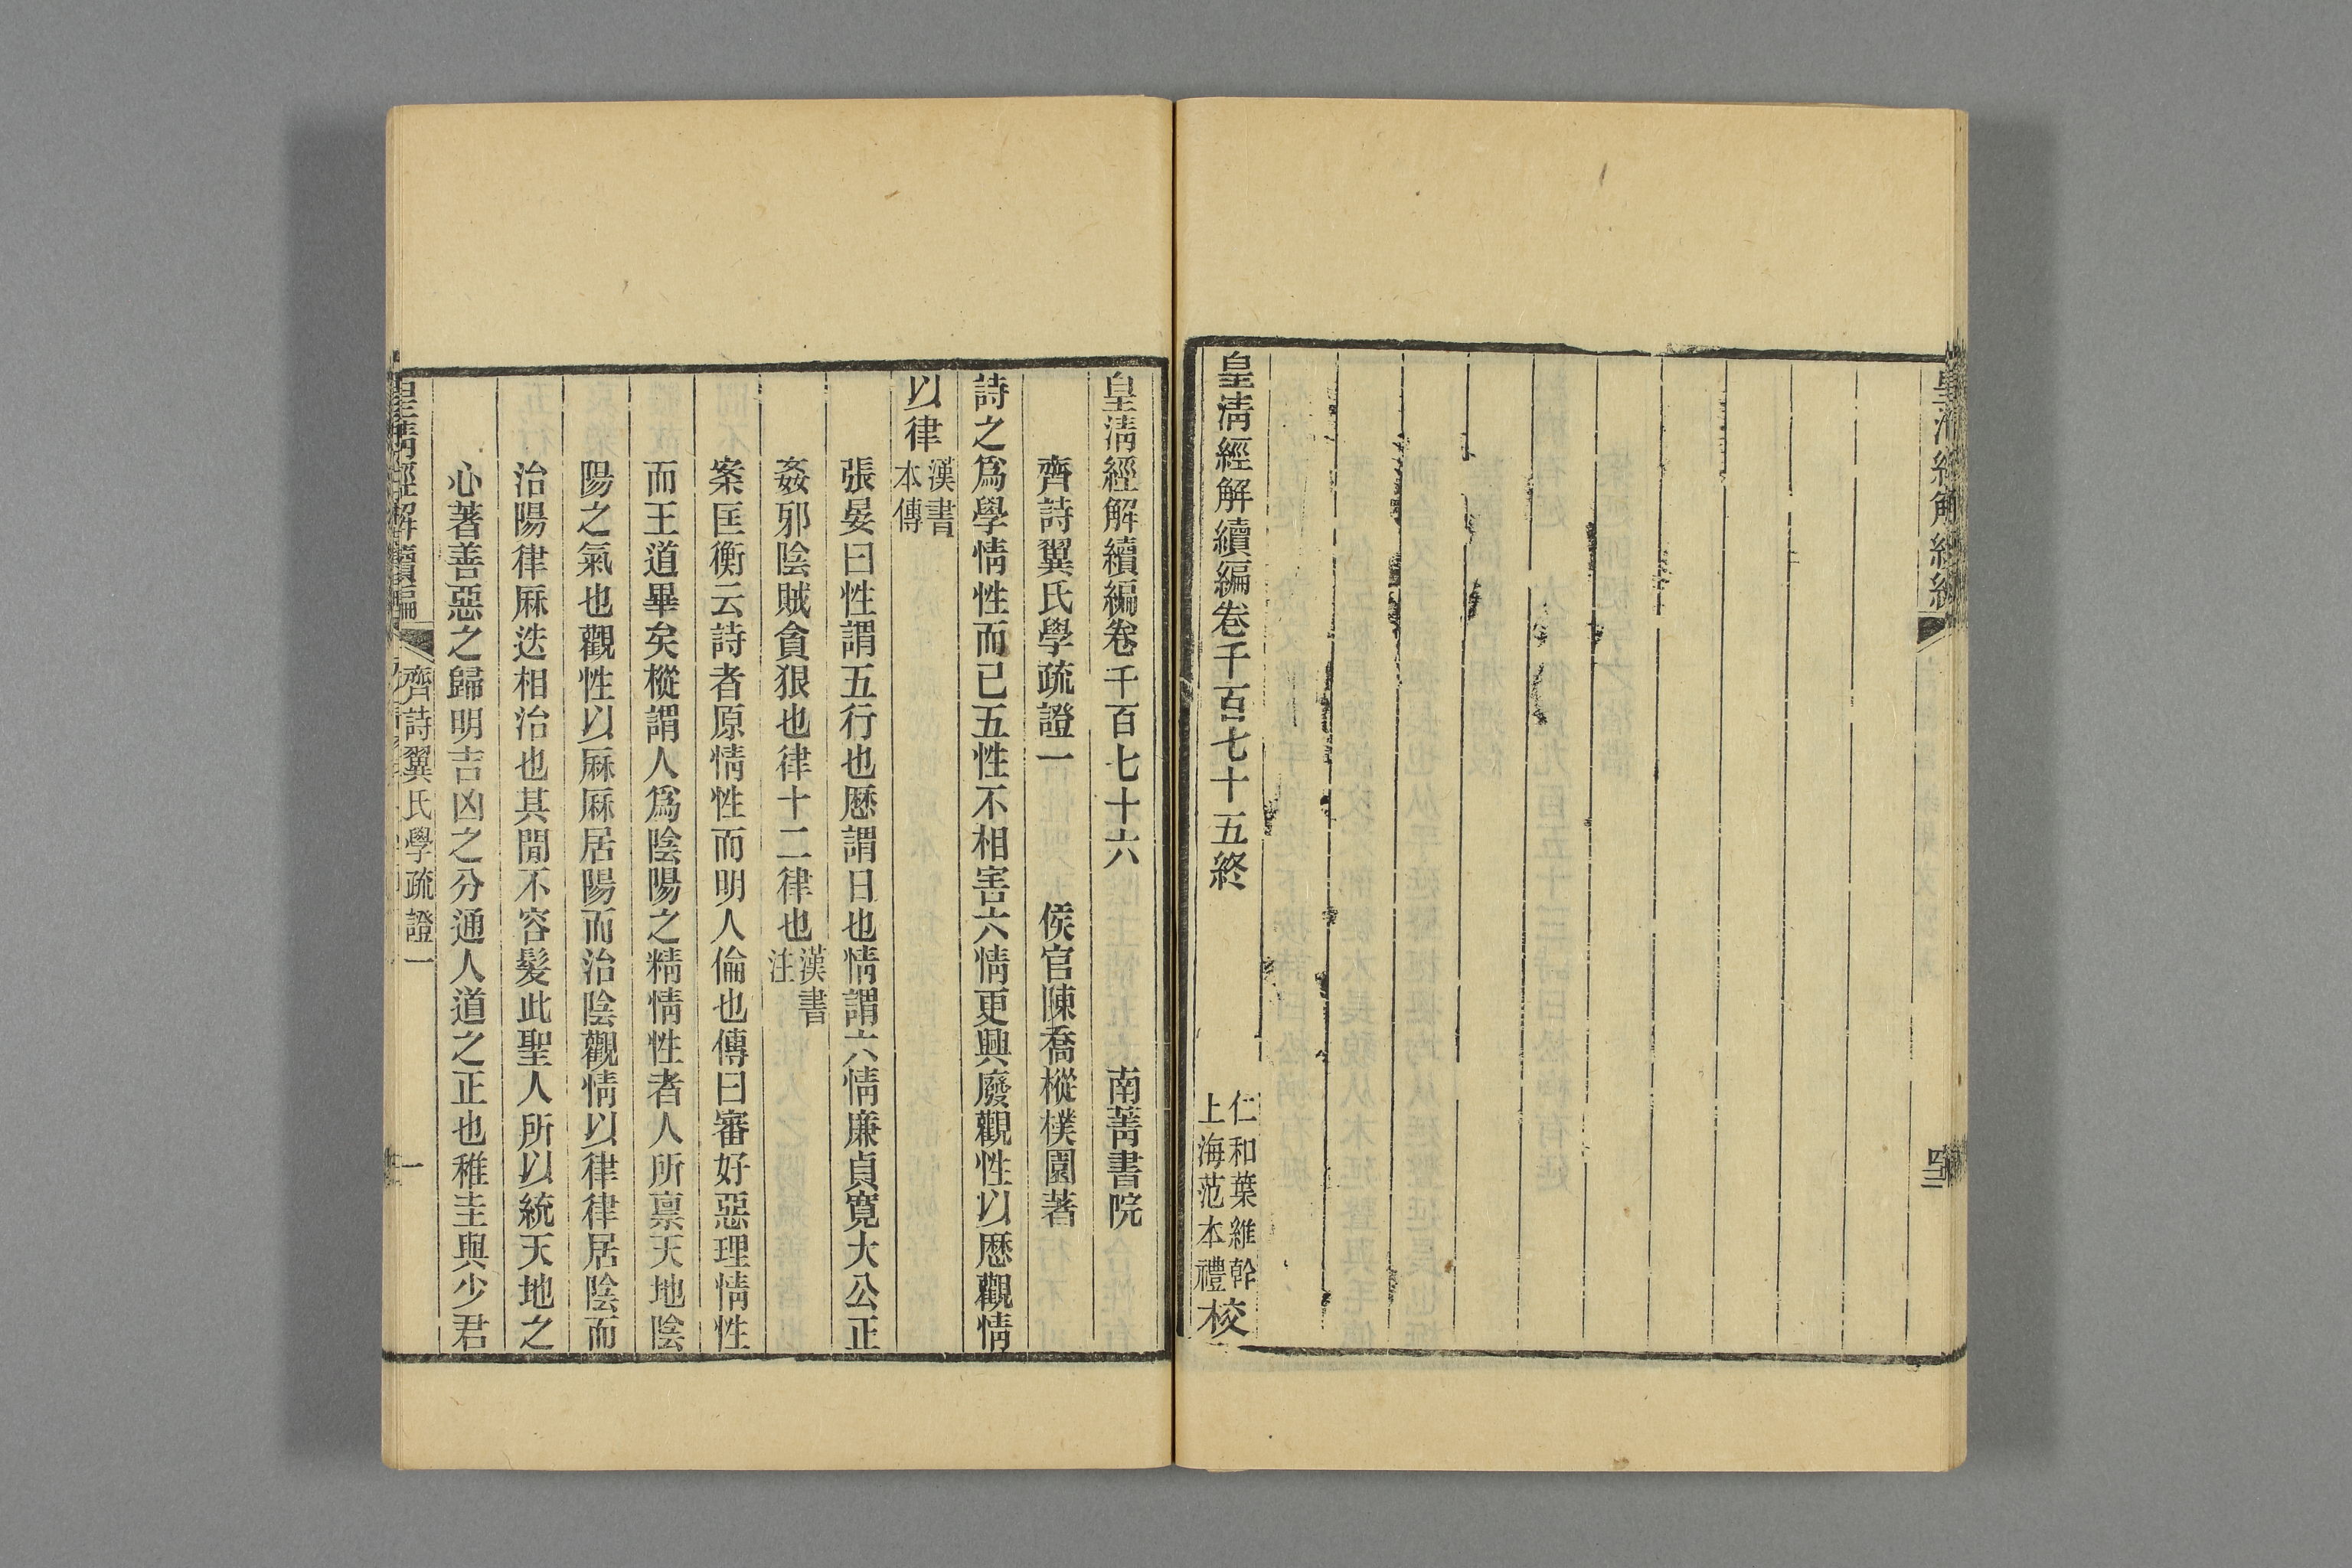 皇清經解續編卷千百七十五終
仁和葉維幹
上海范本禮
校
皇清經解續編卷千百七十六
南菁書院
齊詩翼氏學疏證一
侯官陳喬樅樸園著
詩之爲學情性而已五性不相害六情更興廢觀性以歷觀情
以律
漢書
本傳
張晏曰性謂五行也歷謂日也情謂六情廉貞寬大公正
姦邪陰賊貪狠也律十二律也
漢書
注
案匡衡云詩者原情性而明人倫也傳曰審好惡理情性
而王道畢矣樅謂人爲陰陽之精情性者人所禀天地陰
陽之氣也觀性以厤厤居陽而治陰觀情以律律居陰而
治陽律厤迭相治也其閒不容髮此聖人所以統天地之
心著善惡之歸明吉凶之分通人道之正也稚圭與少君
皇清經解續編
齊詩翼氏學疏證一
一